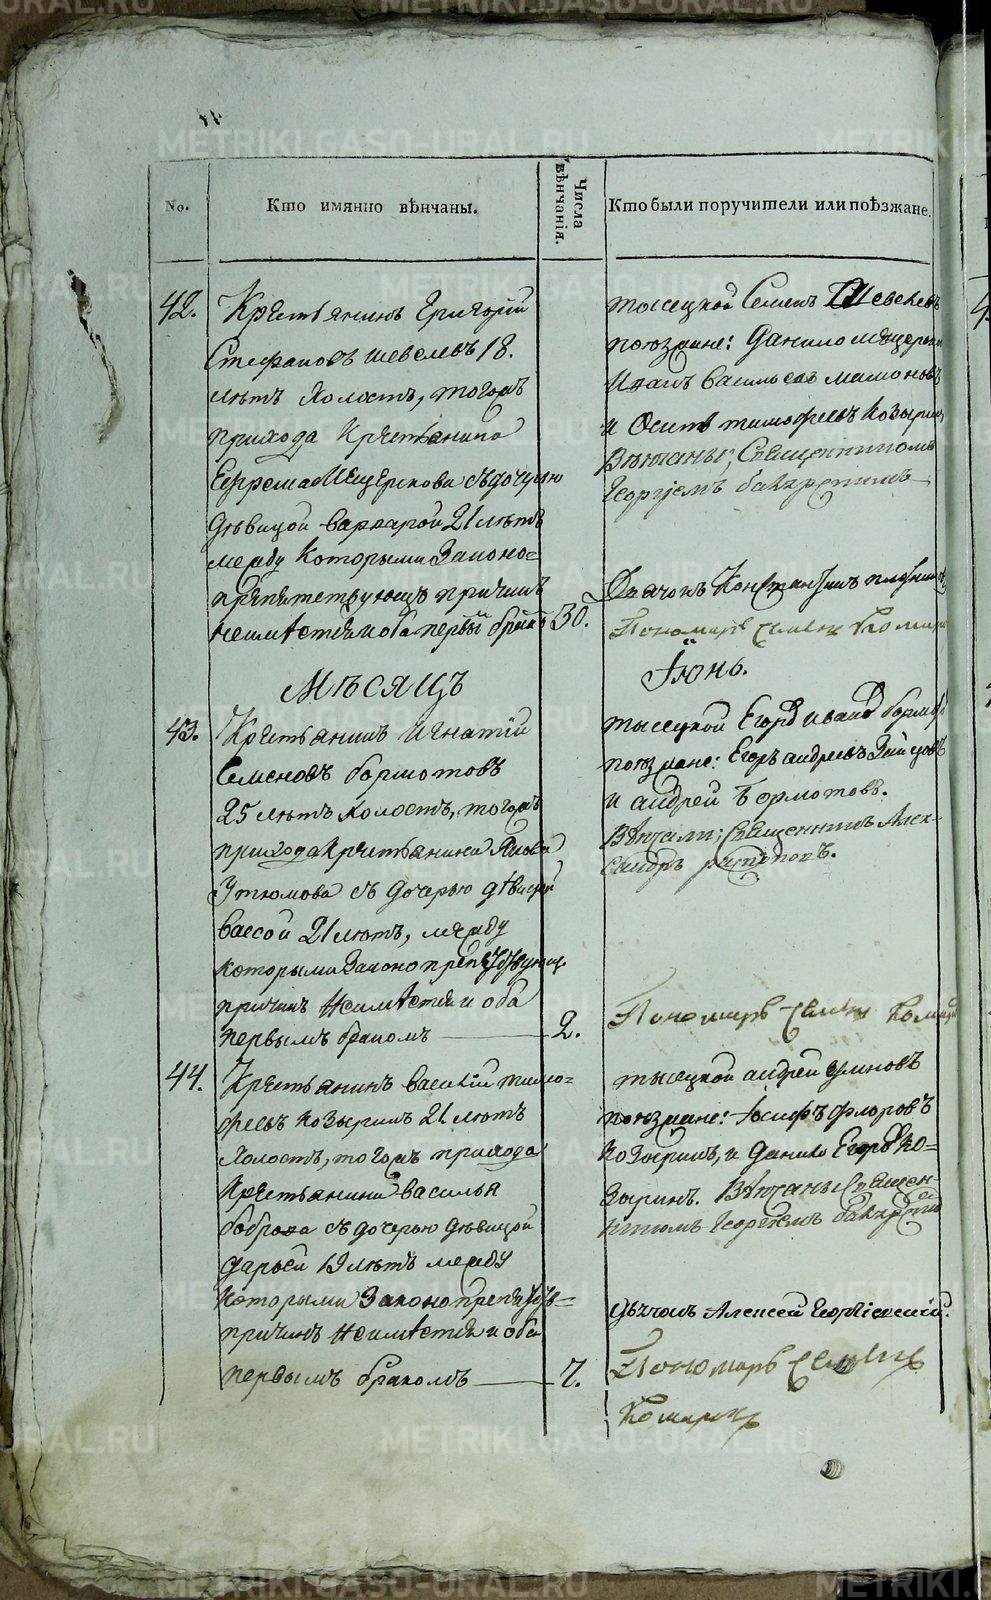 No.
Кто имянно вѣнчаны.
Числа вѣнчанія.
Кто были поручители или поѣзжане.
42.
Крестьянинъ Григорій
Стефановъ Шевелевъ 18.
лѣтъ холостъ, тогожъ
прихода Крестьянина
Ефрема Мещерякова съ дочерью
дѣвицой Варварой 21 лѣтъ
между которыми Законо-
препятствующъ причинъ
неимѣется и оба первый бракъ
30.
тысецкой Семенъ Шевелевъ
поюзжане: Данило Мещеряко
Иванъ Васильевъ Мамоновъ
и Осипъ Тимофеевъ Козырин
Вѣнчаны, Священникомъ
Георгіемъ
Дьячокъ Константинъ
Пономарь Семенъ Комар
Мѣсяцъ
Іюнь.
43.
Крестьянинъ Игнатій
Семеновъ бормотовъ
25 лѣтъ холостъ, тогожъ
прихода Крестьянина Якова
Утюмова съ дочерью дѣвицой
Вассой 21 лѣтъ, между
которыми Законопрепятствующ
причинъ неимѣется и оба
первымъ бракомъ
2.
тысецкой Егоръ Иванъ бормот
поюзжане: Егоръ Андреевъ
и Андрей Бормотовъ.
Вѣнчали; Священникъ Алек-
сандръ
Пономарь Семенъ Комар
44.
Крестьянинъ Василій Тимо-
феевъ Козыринъ 21 лѣтъ
холостъ, тогожъ прихода
Крестьянина Василья
боброва съ дочерью дѣвицой
Дарьей 19 лѣтъ между
которыми Законопрепятств-
причинъ неимѣется и оба
первымъ бракомъ
7.
тысецкой Андрей Умновъ
поюзжане: Іосифъ Флоровъ
Козыринъ, и Данило Егоровъ Ко-
зыринъ. Вѣнчаны Священ-
никомъ Георгіемъ
дьячокъ Алексей Георгіевскій.
Пономарь Семенъ
Комаровъ
METRIKI.GASO-URAL.RU